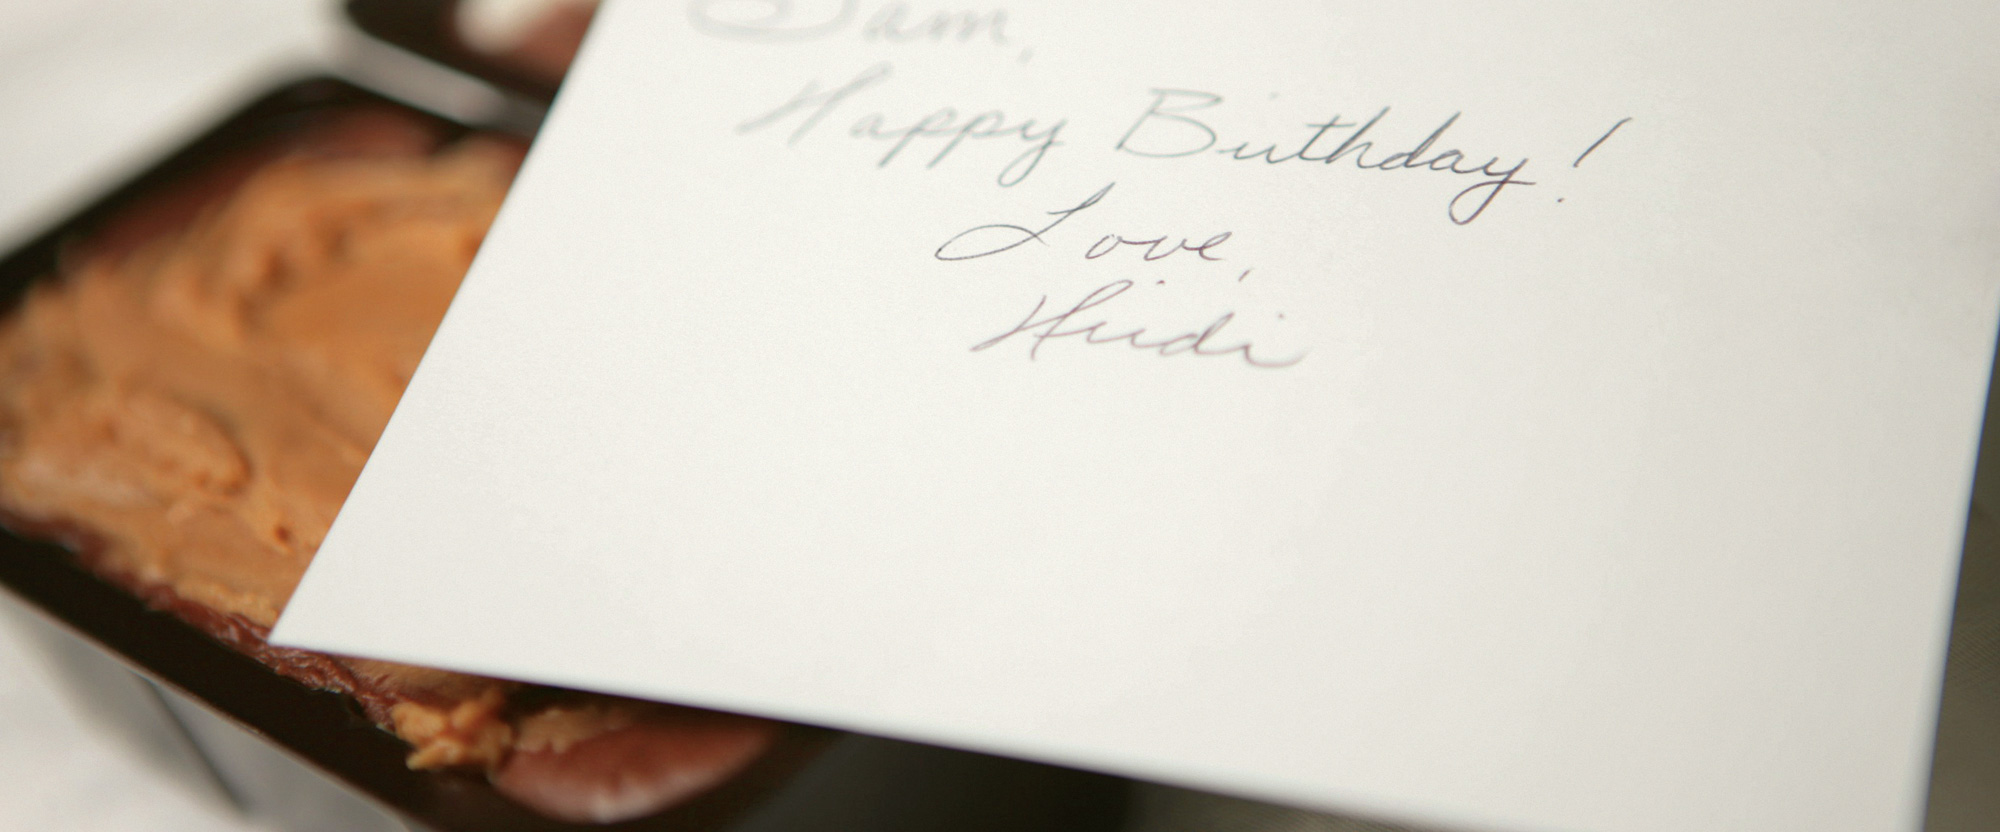 Sam,
Happy Birthday!
Love,
Heidi